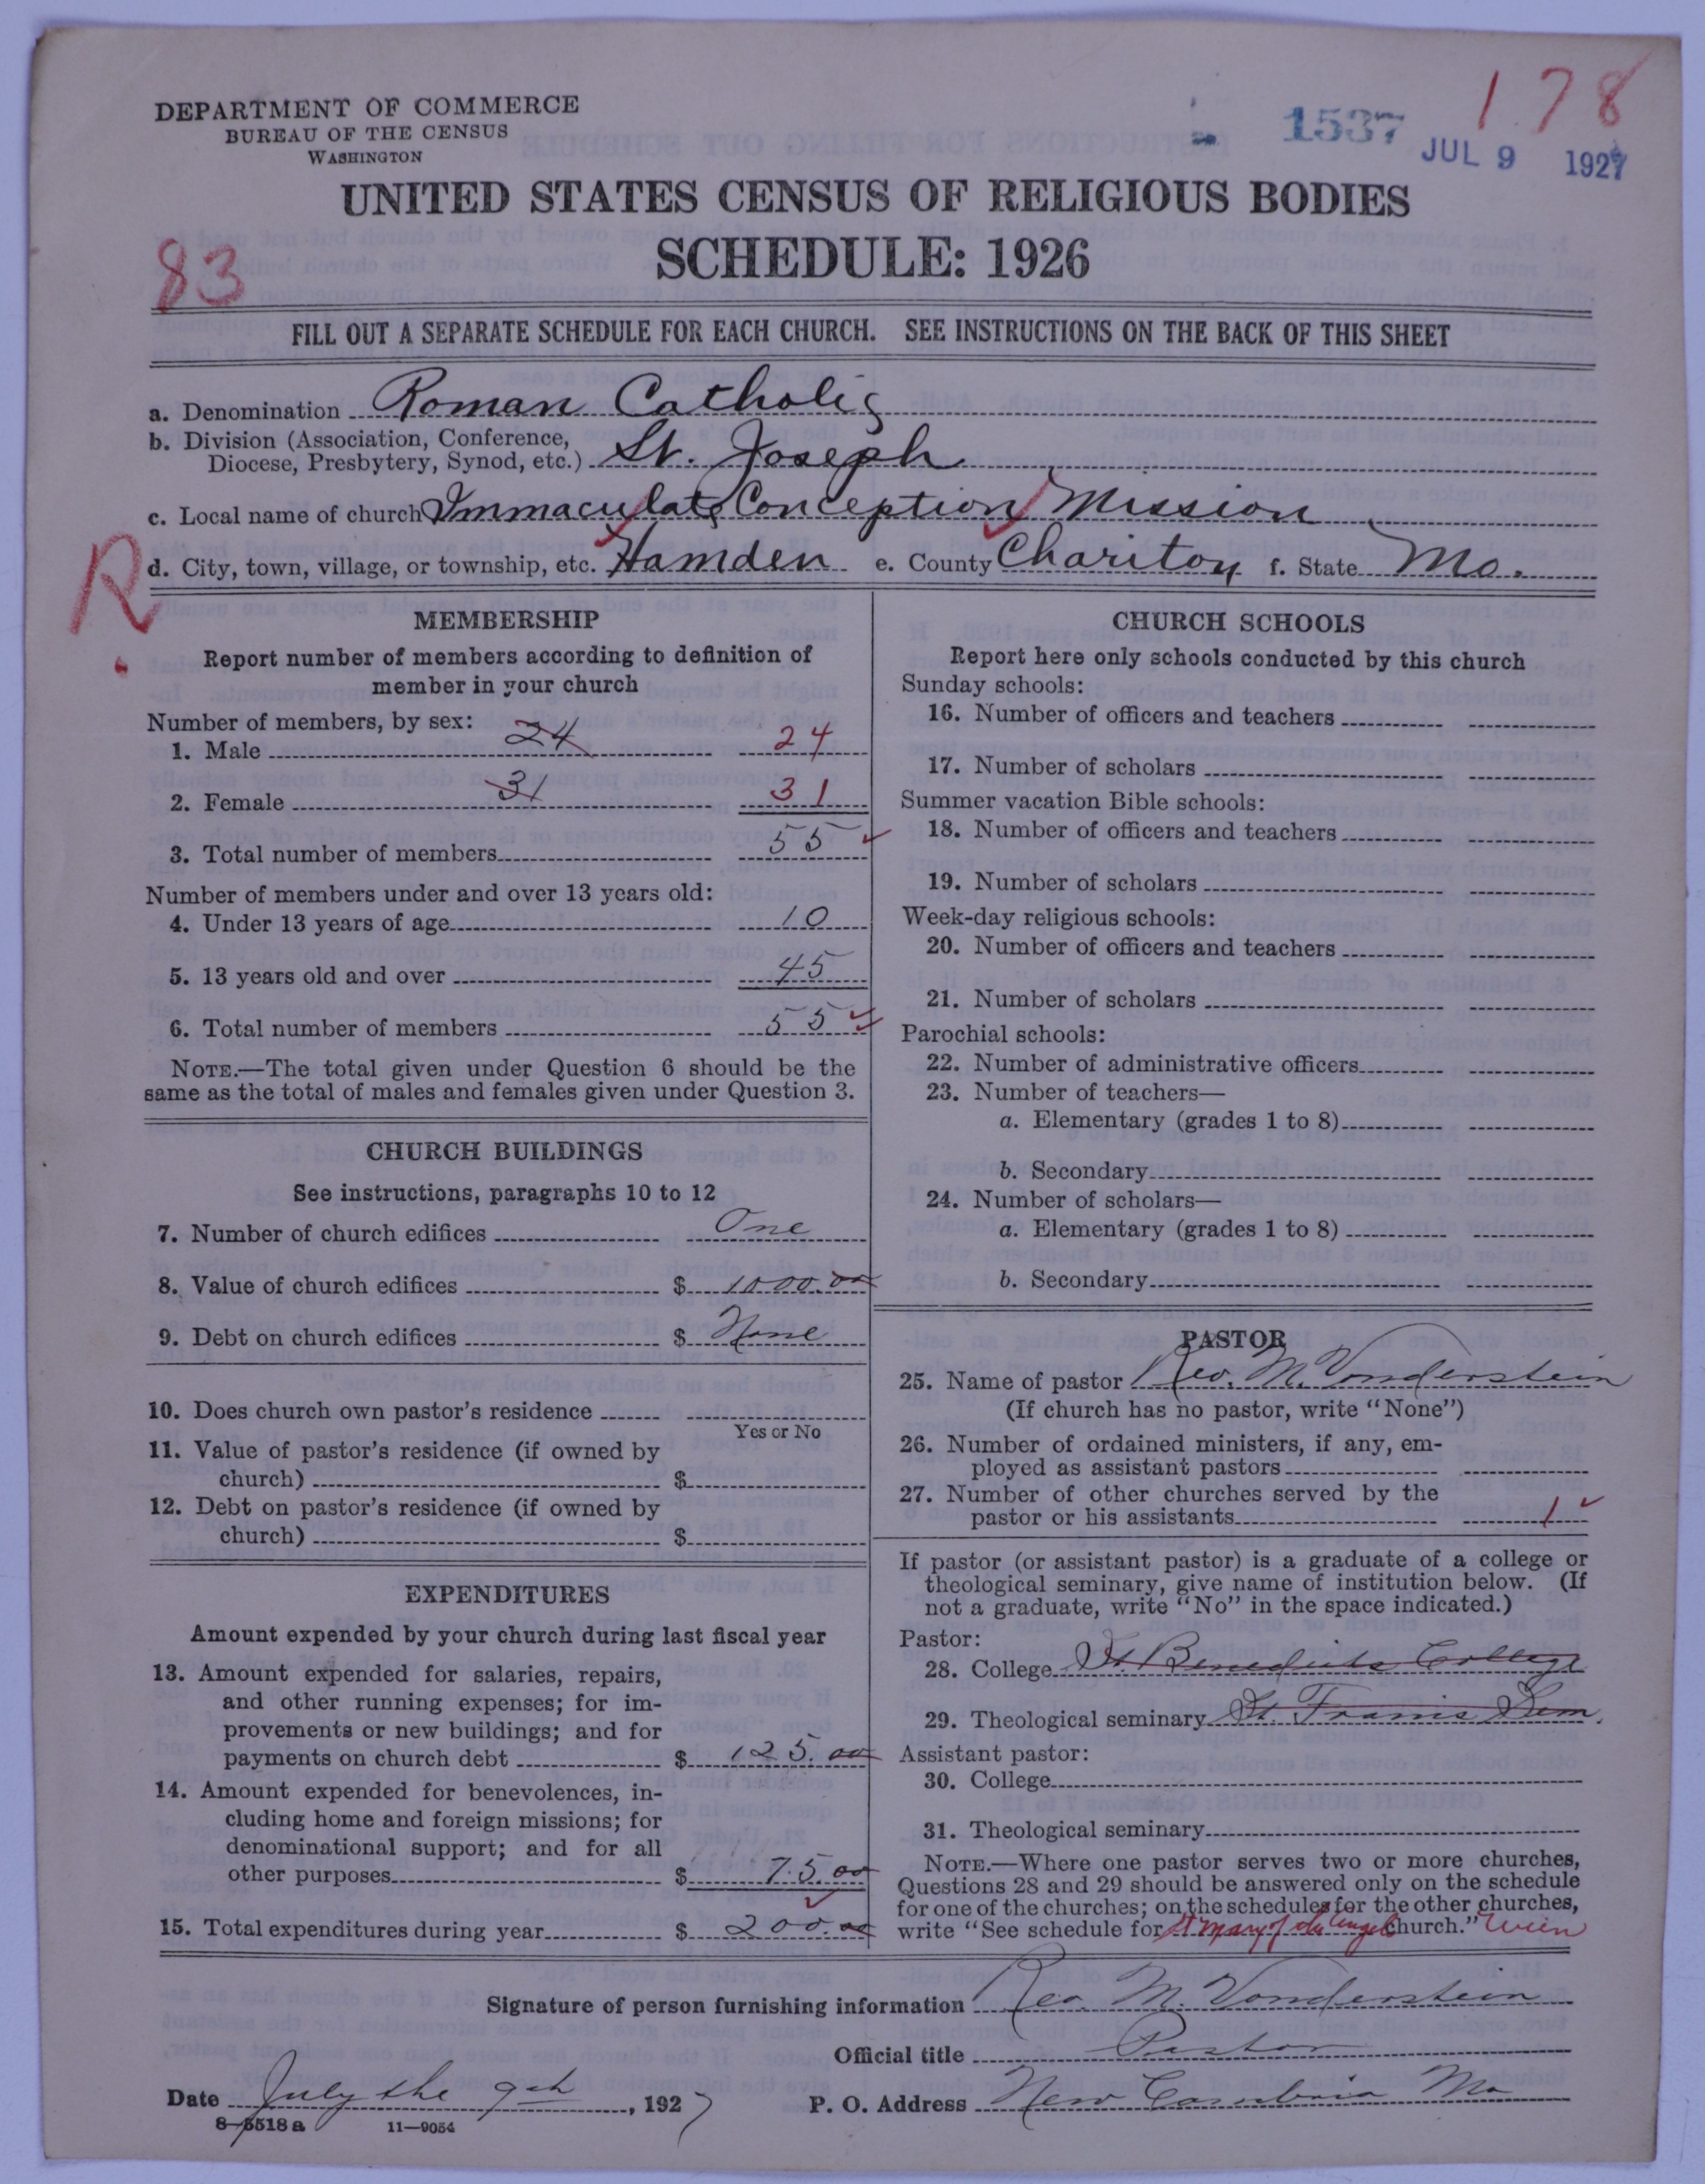 DEPARTMENT OF COMMERCE
BUREAU OF THE CENSUS
WASHINGTON
1537
178
JUL 9 1927
UNITED STATES CENSUS OF RELIGIOUS BODIES
SCHEDULE: 1926
83
FILL OUT A SEPARATE SCHEDULE FOR EACH CHURCH. SEE INSTRUCTIONS ON THE BACK OF THIS SHEET
a. Denomination Roman Catholic
b. Division (Association, Conference,
Diocese, Presbytery, Synod, etc.) St. Joseph
c. Local name of church Immaculate Conception Mission
d. City, town, village, or township, etc. Hamden e. County Chariton f. State Mo.
R
MEMBERSHIP
Report number of members according to definition of
member in your church
Number of members, by sex:
1. Male 24 24
2. Female 31 31
3. Total number of members 55
Number of members under and over 13 years old:
4. Under 13 years of age 10
5. 13 years old and over 45
6. Total number of members 55
NOTE.—The total given under Question 6 should be the
same as the total of males and females given under Question 3.
CHURCH BUILDINGS
See instructions, paragraphs 10 to 12
7. Number of church edifices One
8. Value of church edifices $ 1000.00
9. Debt on church edifices $ None
10. Does church own pastor's residence
Yes or No
11. Value of pastor's residence (if owned by
church) $
12. Debt on pastor's residence (if owned by
church) $
EXPENDITURES
Amount expended by your church during last fiscal year
13. Amount expended for salaries, repairs,
and other running expenses; for im-
provements or new buildings; and for
payments on church debt $ 125.00
14. Amount expended for benevolences, in-
cluding home and foreign missions; for
denominational support; and for all
other purposes $ 75.00
15. Total expenditures during year $ 200.00
CHURCH SCHOOLS
Report here only schools conducted by this church
Sunday schools:
16. Number of officers and teachers
17. Number of scholars
Summer vacation Bible schools:
18. Number of officers and teachers
19. Number of scholars
Week-day religious schools:
20. Number of officers and teachers
21. Number of scholars
Parochial schools:
22. Number of administrative officers
23. Number of teachers—
a. Elementary (grades 1 to 8)
b. Secondary
24. Number of scholars—
a. Elementary (grades 1 to 8)
b. Secondary
PASTOR
25. Name of pastor Rev. M. Vonderstein
(If church has no pastor, write "None")
26. Number of ordained ministers, if any, em-
ployed as assistant pastors
27. Number of other churches served by the
pastor or his assistants 1
If pastor (or assistant pastor) is a graduate of a college or
theological seminary, give name of institution below. (If
not a graduate, write "No" in the space indicated.)
Pastor:
28. College St. Benedicts College
29. Theological seminary St. Francis Sem.
Assistant pastor:
30. College
31. Theological seminary
NOTE.—Where one pastor serves two or more churches,
Questions 28 and 29 should be answered only on the schedule
for one of the churches; on the schedules for the other churches,
write "See schedule for St Mary of the Angels church." Wien
Signature of person furnishing information Rev. M. Vonderstein
Official title Pastor
Date July the 9th, 1927 P. O. Address New Cambria Mo
8-5518 a 11-9054